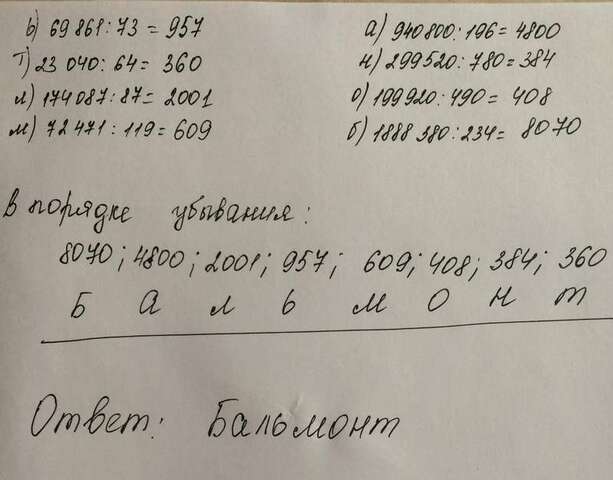 ь) 69 861 : 73 = 957
т) 23 040 : 64 = 360
л) 174 087 : 87 = 2001
м) 72 471 : 119 = 609
а) 940 800 : 196 = 4800
н) 299520 : 780 = 384
о) 199920 : 490 = 408
б) 1888 380 : 234 = 8070
В порядке убывания :
8070 ; 4800 ; 2001 ; 957 ; 609 ; 408 ; 384 ; 360
Б а л ь м о н т
Ответ: Бальмонт